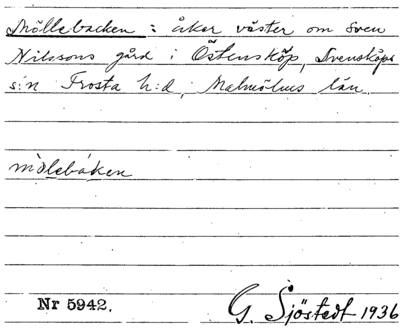 Möllebacken : åker väster om Sven
Nilssons gård i Östensköp, Svensköps
s:n Frosta h:d, Malmöhus län.
mölebáken
Nr 5942.
G. Sjöstedt 1936